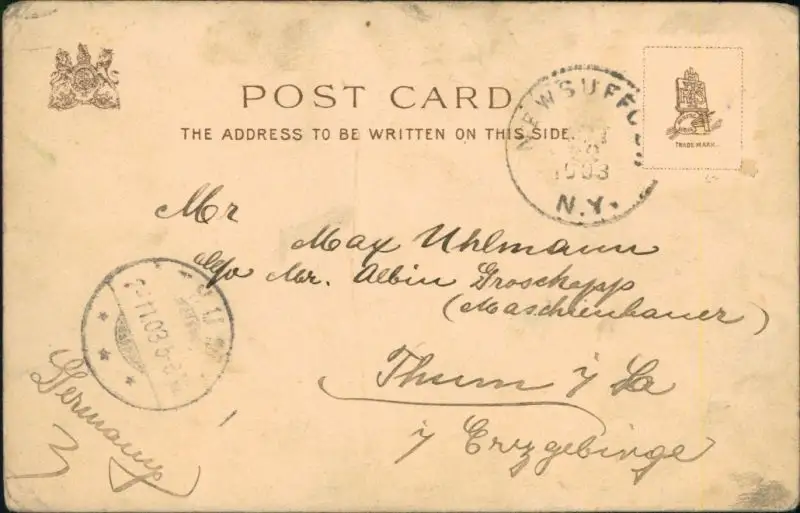 POST CARD
THE ADDRESS TO BE WRITTEN ON THIS SIDE.
NEW SUFFOLK
1903
N.Y.
TRADE MARK.
Mr
Max Uhlmann
Mr. Albin Groschopp
(Maschienbauer)
Thum i/ Sa
i/ Erzgebirge
Germany
11.03